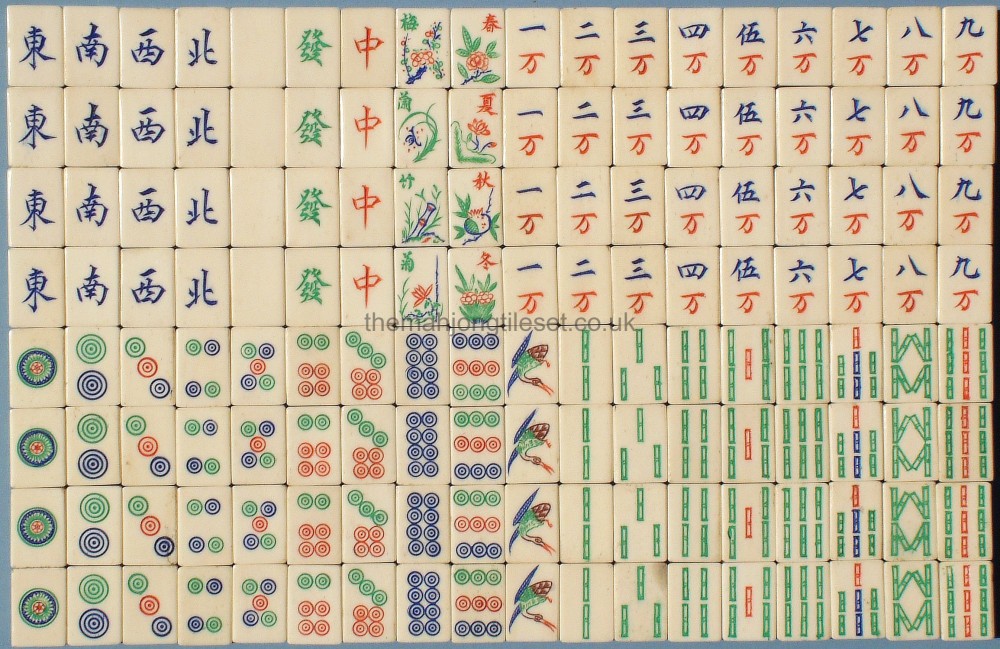 東 南 西 北 發 中 梅 春 一万 二万 三万 四万 伍万 六万 七万 八万 九万
東 南 西 北 發 中 夏 一万 二万 三万 四万 伍万 六万 七万 八万 九万
東 南 西 北 發 中 竹 秋 一万 二万 三万 四万 伍万 六万 七万 八万 九万
東 南 西 北 發 中 菊 冬 一万 二万 三万 四万 伍万 六万 七万 八万 九万
themahjongtileset.co.uk